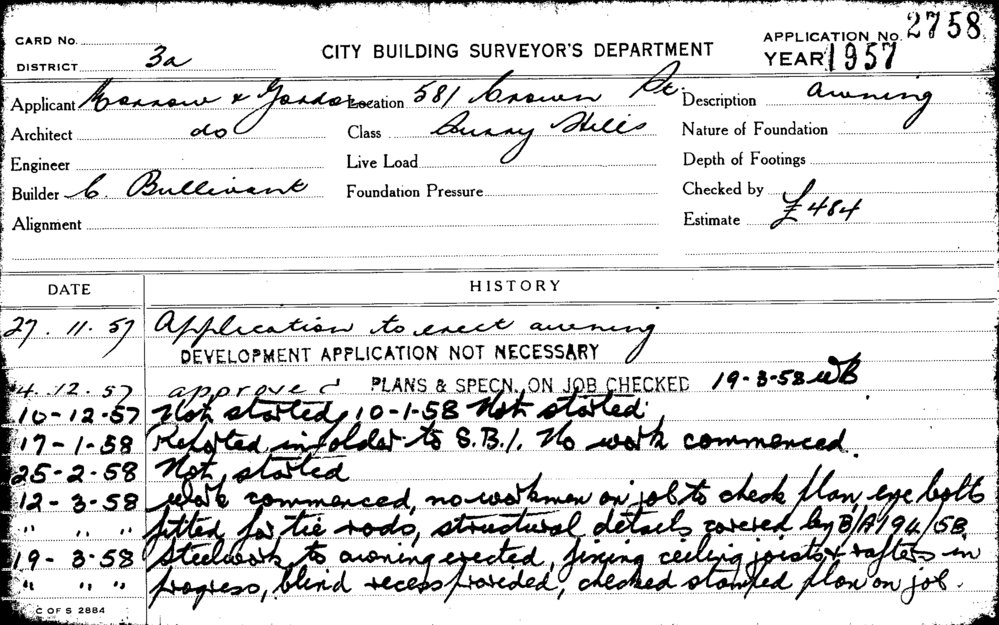 CARD No.
DISTRICT 3a
CITY BUILDING SURVEYOR'S DEPARTMENT
APPLICATION No. 2758
YEAR 1957
Applicant & Gordon Location 581 Crown St. Description awning
Architect do Class Surry Hills Nature of Foundation
Engineer Live Load Depth of Footings
Builder C. Bullivant Foundation Pressure Checked by
Alignment Estimate £484
DATE HISTORY
27.11.57 Application to erect awning
DEVELOPMENT APPLICATION NOT NECESSARY
4.12.57 approved PLANS & SPECN. ON JOB CHECKED 19-3-58 WB
10-12-57 Not started, 10-1-58 Not started
17-1-58 Reported in folder to S.B.I. No work commenced.
25-2-58 Not started
12-3-58 Work commenced, no workmen on job to check plan, eye bolts
" " " fitted for tie rods, structural details covered by B/A 194/58
19-3-58 Steelwork to awning erected, fixing ceiling joists & rafters in
" " " progress, blind recess provided, checked stamped plan on job.
C OF S 2884